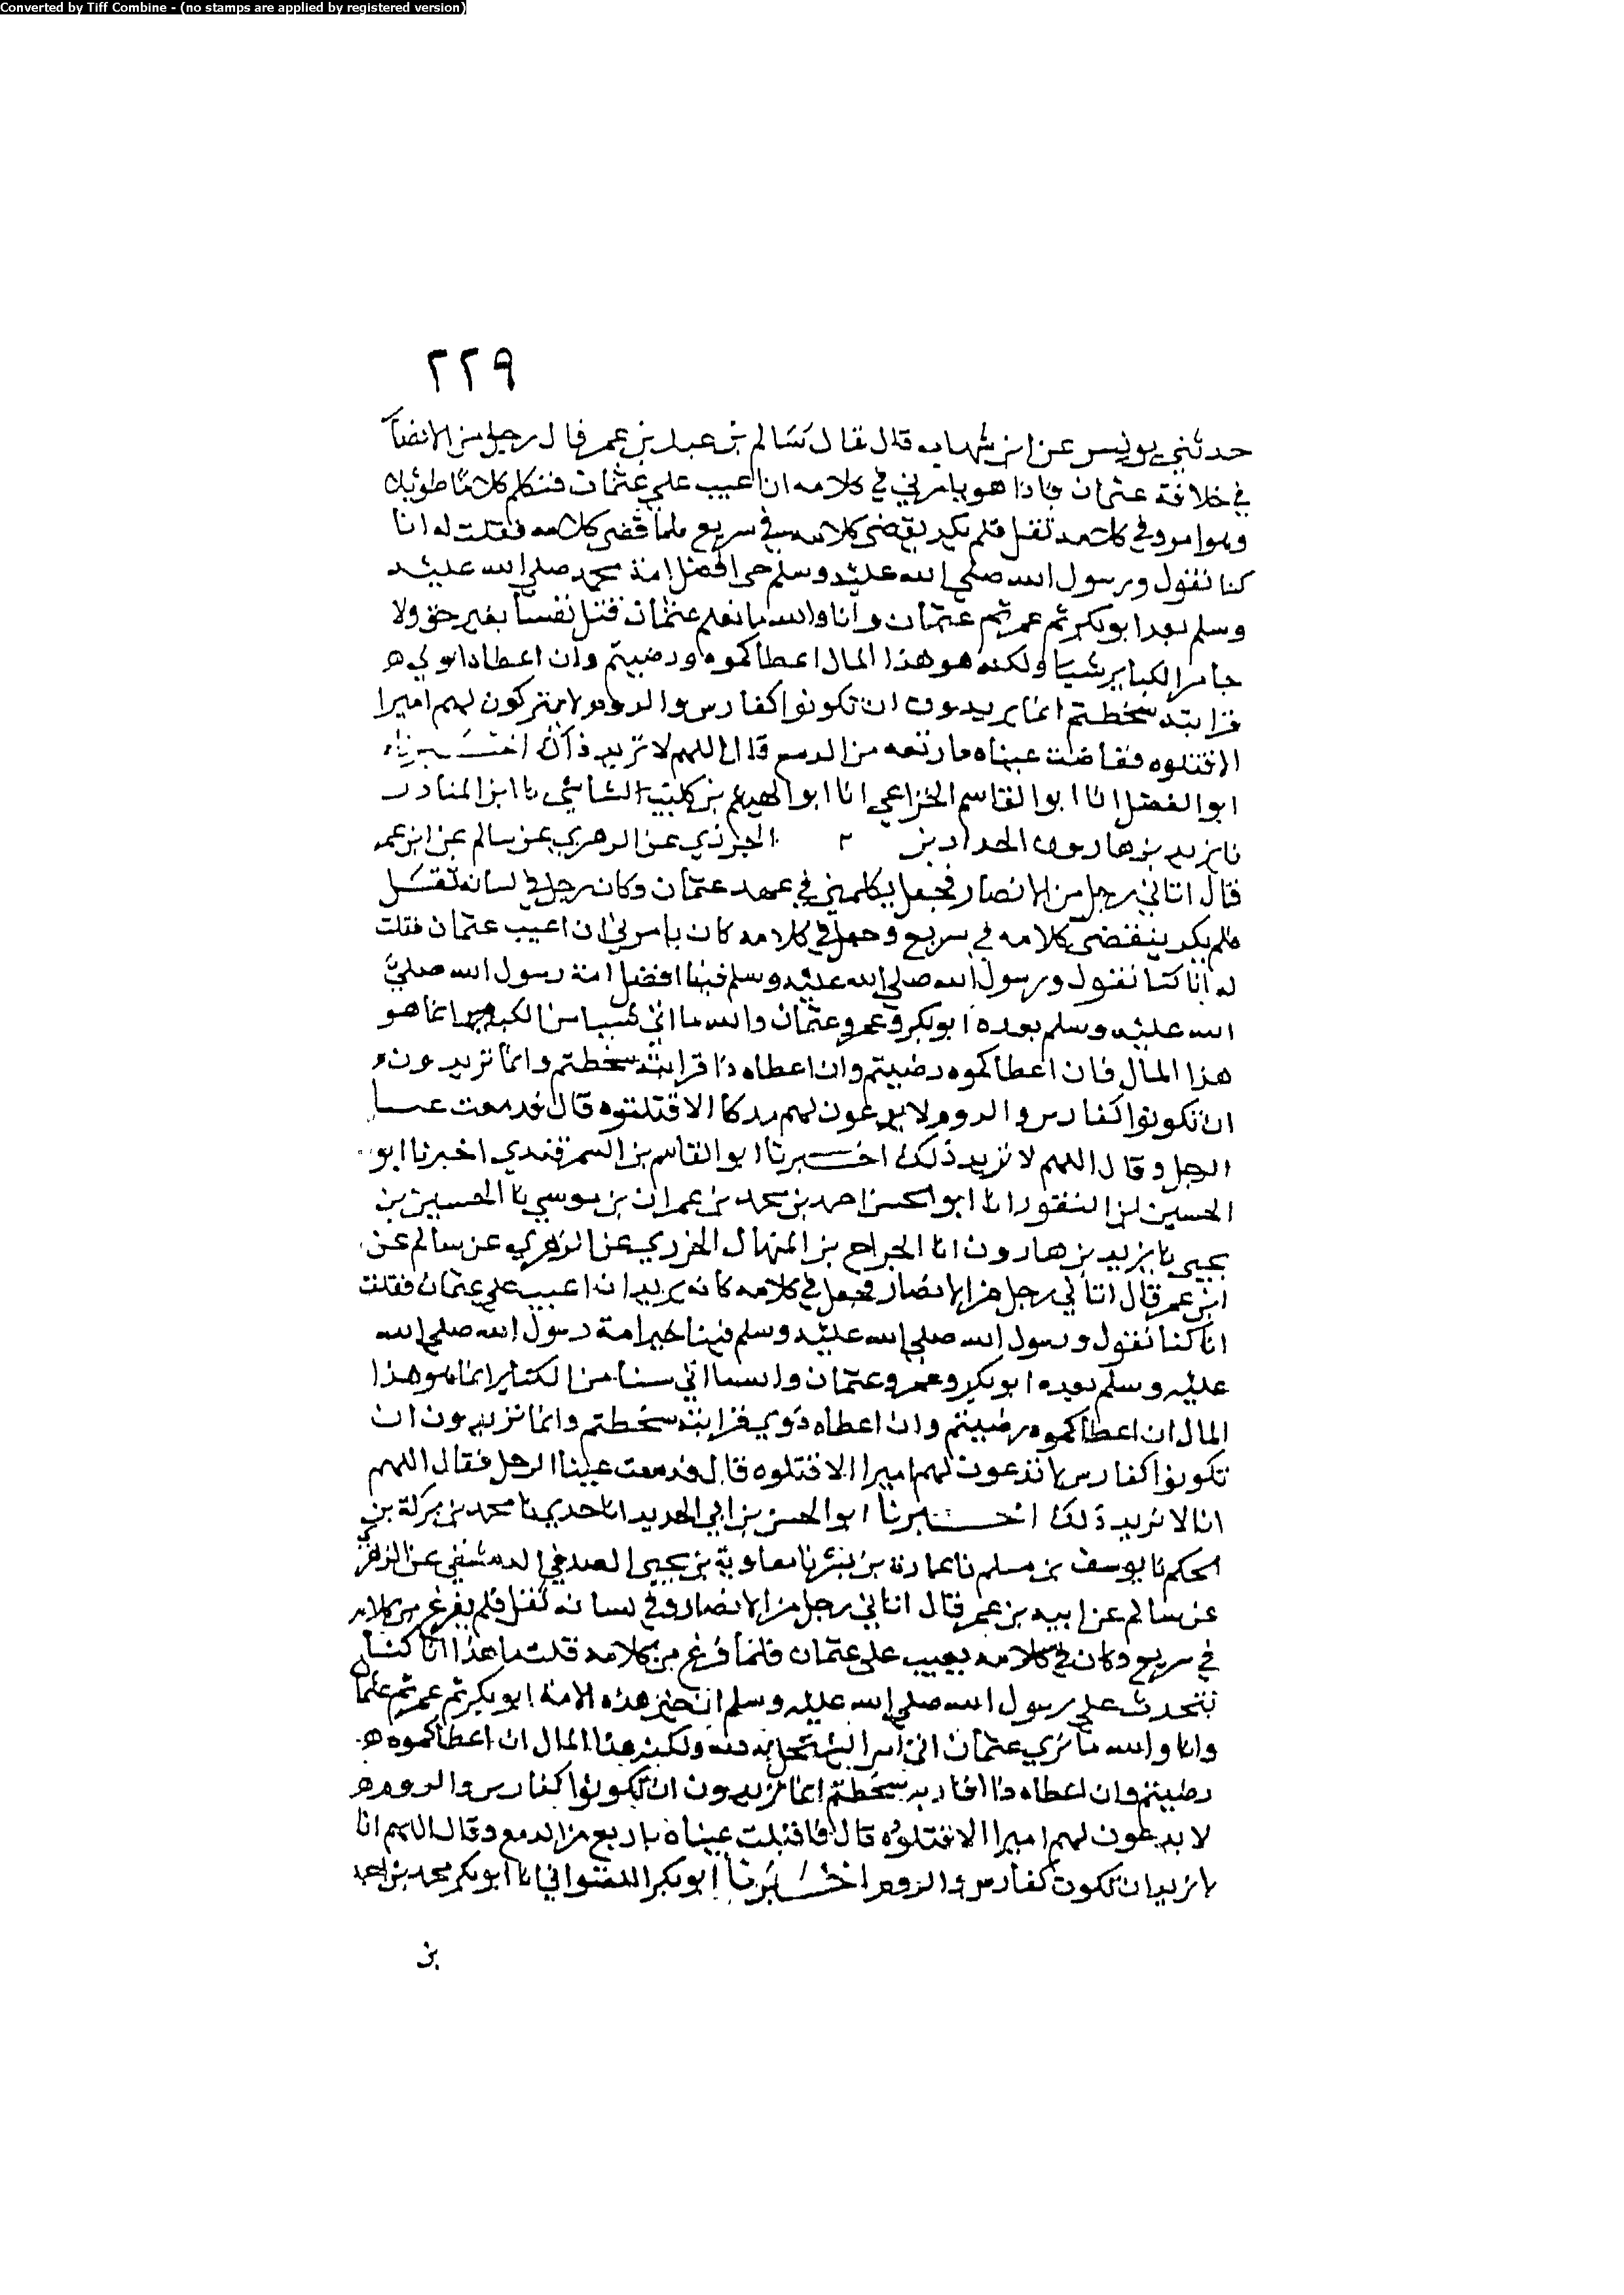 Converted by Tiff Combine - (no stamps are applied by registered version)
٢٢٩
حدثني يونس عن ابن شهاب قال قال سالم بن عبد بن عمر قال رجل من الانصا
في خلافة عثمان فاذا هو يامرني في كلامه ان اعيب علي عثمان فتكلم كلاما طويلا
وهو امرو في كلامه ثقل فلم يكد يقضى كلامه في سريع فلما قضى كلامه فقلت له انا
كنا نقول ورسول الله صلي الله عليه وسلم حي افضل امة محمد صلي الله عليه
وسلم بعد ابو بكر ثم عمر ثم عثمان وانا والله ما نعلم عثمان قتل نفسا بغير حق ولا
جا من الكباير شيا ولكنه هو هذا المال اعطاكموه ورضيتم وان اعطا داولي
قرابته سخطتم انما يريدون ان تكونوا كفارس والروم لا يتركون لهم اميرا
الا قتلوه ففاضت عيناه باربعه من الدمع قال اللهم لا نريد ذاك اخبرناه
ابو الفضل انا ابو القاسم الخزاعي انا ابو الهيثم بن كليب الشاشي نا ابن المنادي
نا يزيد بن هارون الحداد بن ٢ الجزري عن الزهري عن سالم عن ابن عمر
قال اتاني رجل من الانصار فجعل يكلمني في عهد عثمان وكان رجل في لسانه ثقل
فلم يكد ينقضى كلامه في سريع وجعل في كلامه كان يامرني ان اعيب عثمان فقلت
له انا كنا نقول ورسول الله صلي الله عليه وسلم فينا افضل امة رسول الله صلي
الله عليه وسلم بعده ابو بكر وعمر وعثمان والله ما اتى شيبا من الكباير انما هو
هذا المال فان اعطاكموه رضيتم وان اعطاه ذا قرابته سخطتم وانما تريدون
ان تكونوا كفارس والروم لا يدعون لهم ملكا الا قتلتوه قال فدمعت عينا
الرجل وقال اللهم لا نريد ذلك اخبرنا ابو القاسم بن السمرقندي اخبرنا ابو
الحسين بن النقور انا ابو الحسن احمد بن محمد بن عمران بن موسي نا الحسين بن
يحيى نا يزيد بن هارون انا الجراح بن المنهال الجزري عن الزهري عن سالم عن
ابن عمر قال اتاني رجل من الانصار فجعل في كلامه كانه يريد ان اعيب علي عثمان فقلت
انا كنا نقول ورسول الله صلي الله عليه وسلم فينا خير امة رسول الله صلي الله
عليه وسلم بعده ابو بكر وعمر وعثمان والله ما اتي شيا من الكباير انما هو هذا
المال ان اعطاكموه رضيتم وان اعطاه ذوي قرابته سخطتم وانما تريدون ان
تكونوا كفارس لا تدعون لهم اميرا الا قتلوه قال فدمعت عينا الرجل فقال اللهم
انا لا نريد ذلك اخبرنا ابو الحسن بن ابي الحديد انا جدي نا محمد بن بركة بن
الحكم نا يوسف بن مسلم نا عمارة بن بشر نا معاوية بن يحيي الصدفي الدمشقي عن الزهري
عن سالم عن ابيه بن عمر قال اتاني رجل من الانصار وفي لسانه ثقل فلم يفرغ من كلامه
في سريع وكان في كلامه يعيب علي عثمان فلما فرغ من كلامه قلت ما هذا انا كنا
نتحدث علي رسول الله صلي الله عليه وسلم ان خير هذه الامة ابو بكر ثم عمر ثم عثمان
وانا والله ما نري عثمان اتى امرا يستحل به دمه ولكن هذا المال ان اعطاكموه
رضيتم وان اعطاه ذا اقاربه سخطتم انما تريدون ان تكونوا كفارس والروم
لا يدعون لهم اميرا الا قتلوه قال فاقبلت عيناه باربع من الدمع وقال اللهم انا
لا نريد ان نكون كفارس والروم اخبرنا ابو بكر اللفتواني انا ابو بكر محمد بن احمد
بن